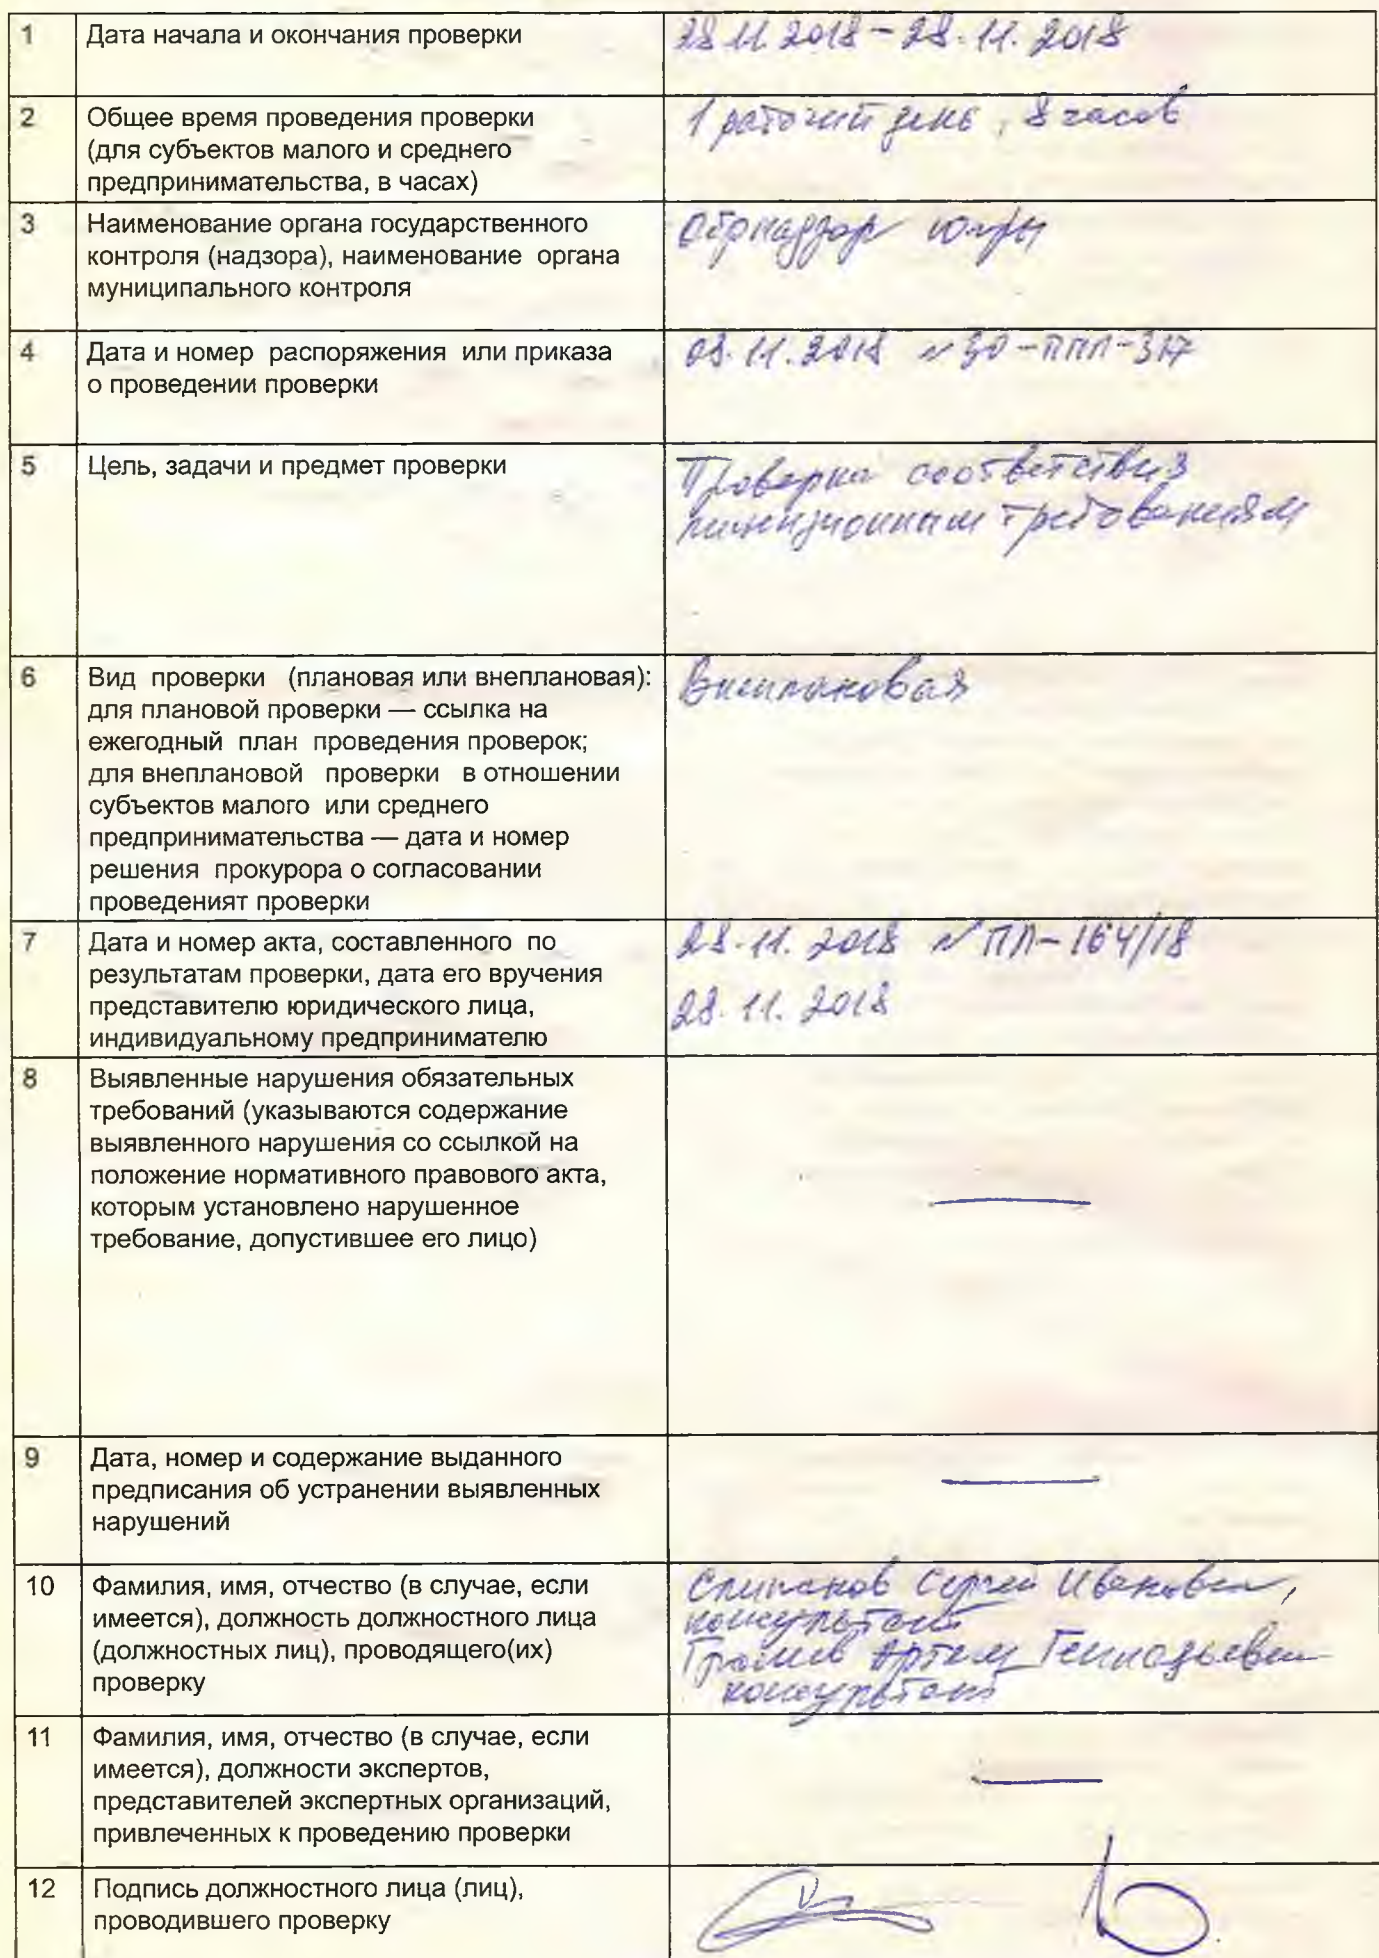 1 Дата начала и окончания проверки 28.11.2018 - 28.11.2018
2 Общее время проведения проверки 1 рабочий день, 8 часов
(для субъектов малого и среднего
предпринимательства, в часах)
3 Наименование органа государственного Обрнадзор Югры
контроля (надзора), наименование органа
муниципального контроля
4 Дата и номер распоряжения или приказа 08.11.2018 №30-ППЛ-317
о проведении проверки
5 Цель, задачи и предмет проверки Проверка соответствия
лицензионным требованиям
6 Вид проверки (плановая или внеплановая): Внеплановая
для плановой проверки — ссылка на
ежегодный план проведения проверок;
для внеплановой проверки в отношении
субъектов малого или среднего
предпринимательства — дата и номер
решения прокурора о согласовании
проведеният проверки
7 Дата и номер акта, составленного по 28.11.2018 № ПЛ-164/18
результатам проверки, дата его вручения
представителю юридического лица, 28.11.2018
индивидуальному предпринимателю
8 Выявленные нарушения обязательных
требований (указываются содержание
выявленного нарушения со ссылкой на
положение нормативного правового акта,
которым установлено нарушенное
требование, допустившее его лицо) —
9 Дата, номер и содержание выданного
предписания об устранении выявленных —
нарушений
10 Фамилия, имя, отчество (в случае, если Сергей Иванович,
имеется), должность должностного лица консультант
(должностных лиц), проводящего(их) Артем Геннадьевич
проверку консультант
11 Фамилия, имя, отчество (в случае, если
имеется), должности экспертов, —
представителей экспертных организаций,
привлеченных к проведению проверки
12 Подпись должностного лица (лиц),
проводившего проверку